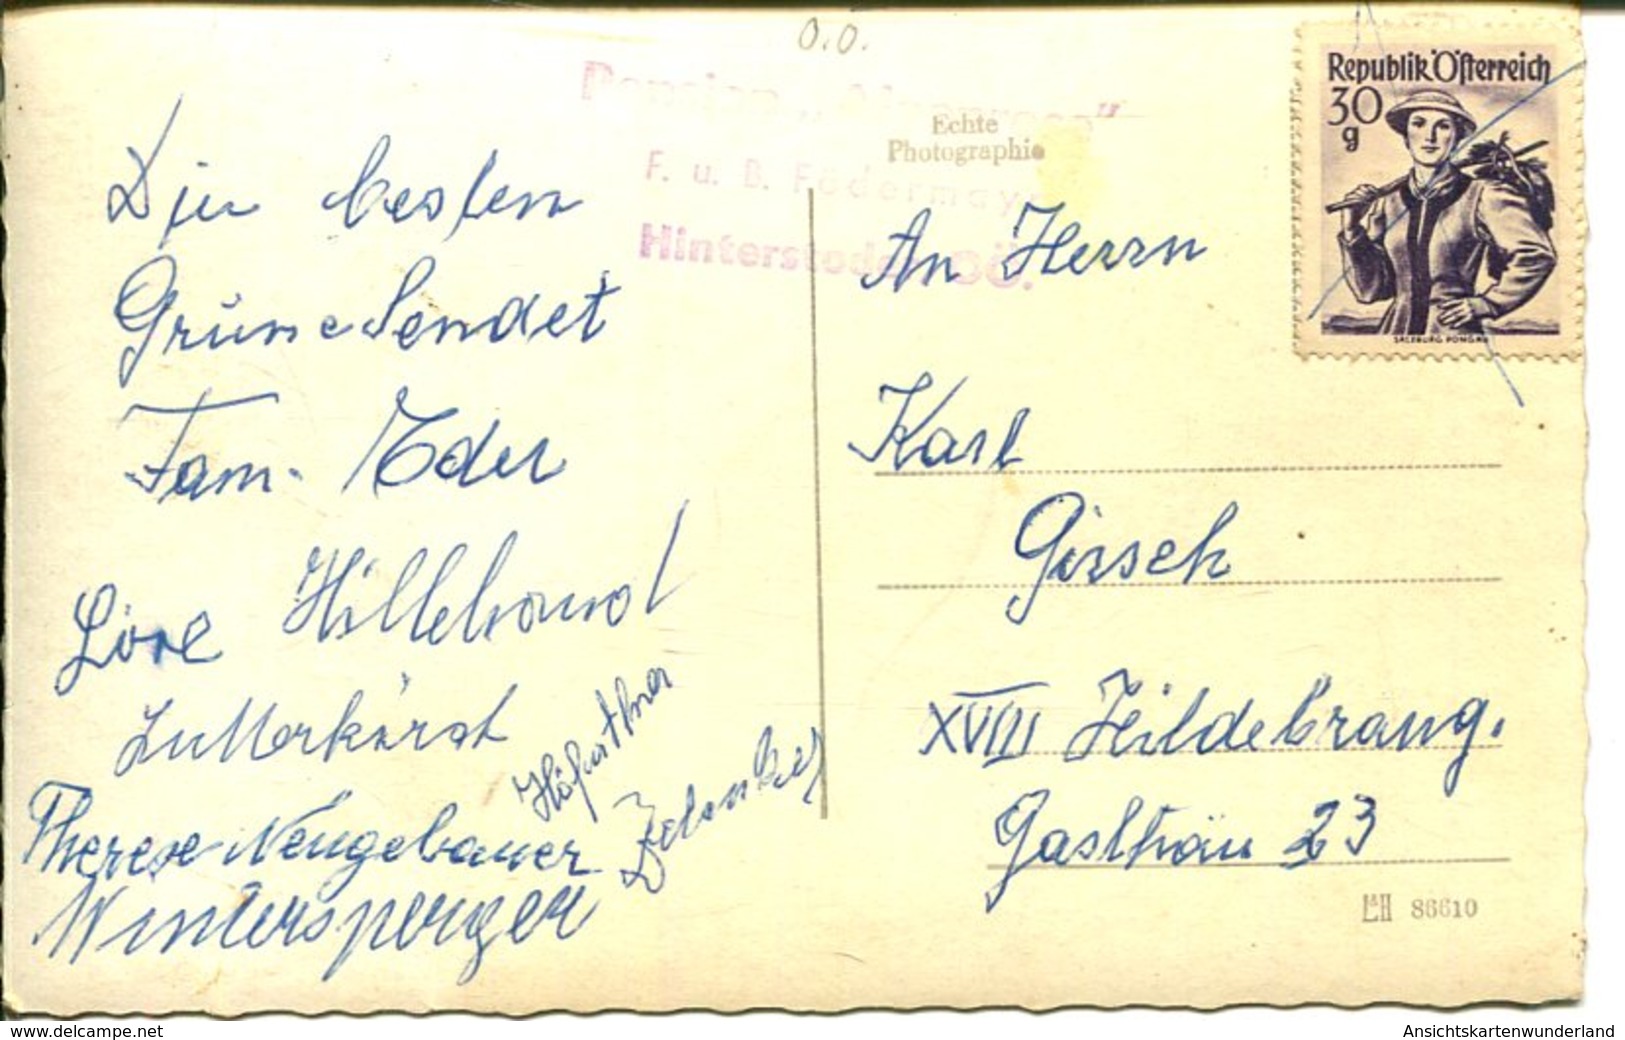 O.O.
Pension „Alpenrose"
Echte
Photographie
F. u. B. Födermayr
Hinterstoder OÖ.
Republik Österreich
30
g
SALZBURG PONGAU
Die besten
Grüsse Sendet
Fam. Eder
Hillebrand
Höfurthner
Therese Neugebauer
Wintersperger
An Herrn
Karl
Girsch
XVIII Hildebrang.
Gasthaus 23
L&H 86610
www.delcampe.net
Ansichtskartenwunderland